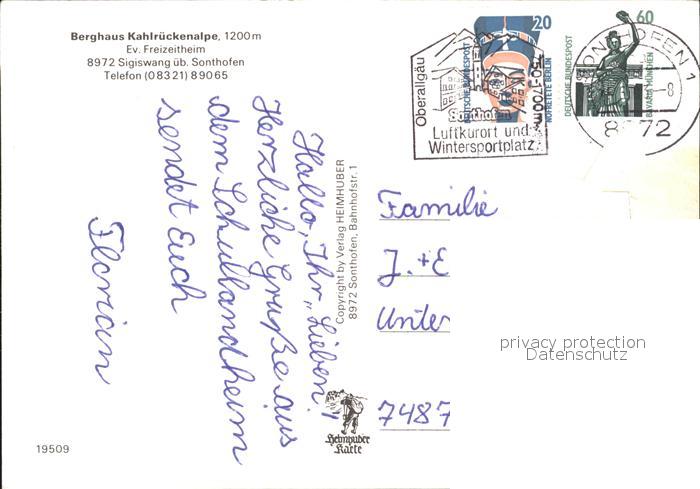 Berghaus Kahlrückenalpe, 1200 m
Ev. Freizeitheim
8972 Sigiswang üb. Sonthofen
Telefon (0 83 21) 8 90 65
Hallo, Ihr „Lieben"!
Herzliche Grüße aus
dem Schullandheim
sendet Euch
Florian
Copyright by Verlag HEIMHUBER
8972 Sonthofen, Bahnhofstr. 1
Heimhuber
Karte
19509
Oberallgäu
750-1700m
Sonthofen
Luftkurort und
Wintersportplatz
20
DEUTSCHE BUNDESPOST
NOFRETETE BERLIN
60
DEUTSCHE BUNDESPOST
BAVARIA MÜNCHEN
SONTHOFEN 1
-8
8972
Familie
J. + E
Unter
7487
privacy protection
Datenschutz